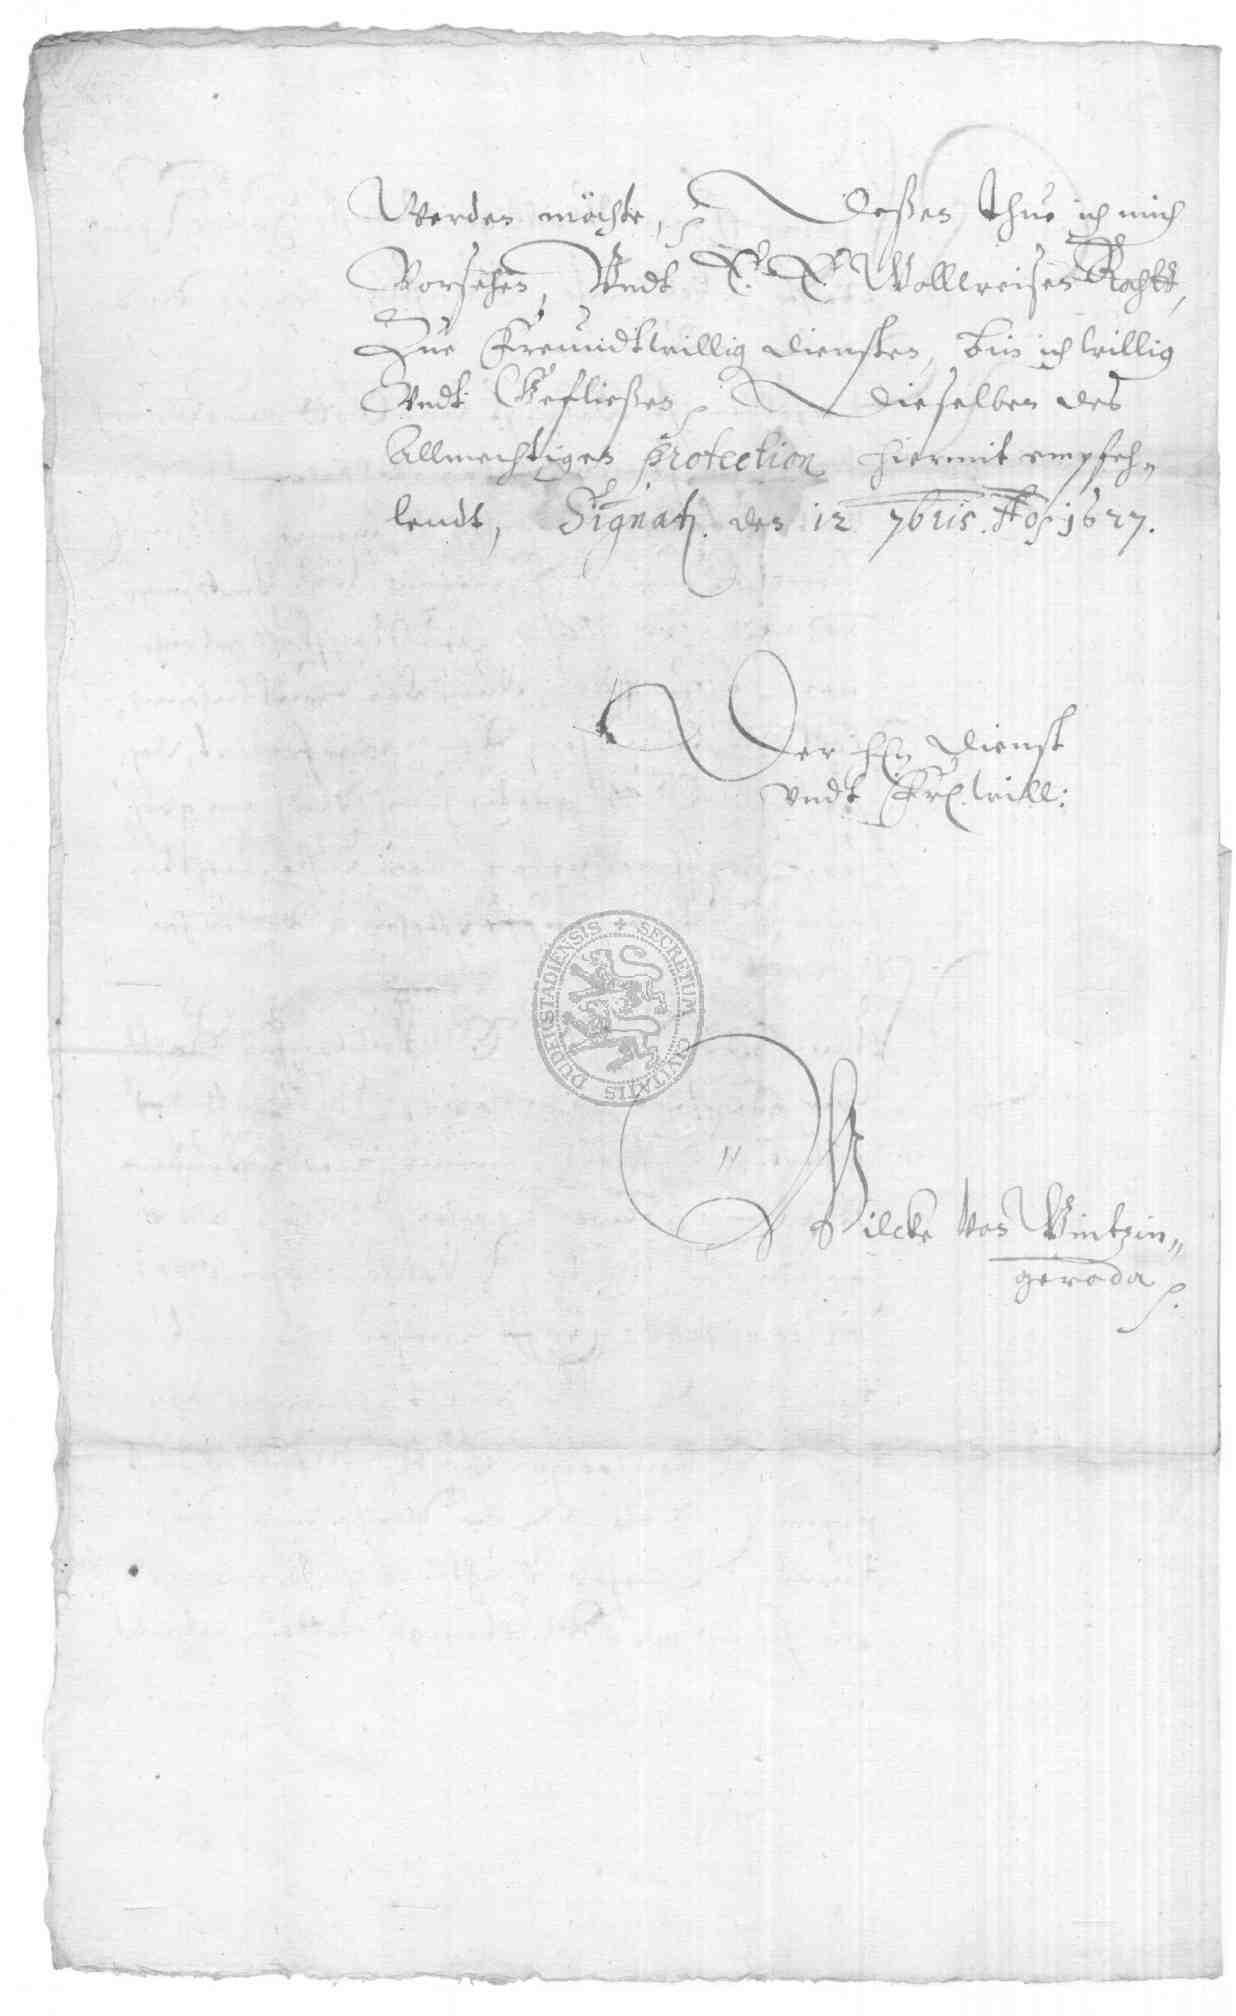 Werden möchte, Deßen thue ich mich
Vorsehen, Undt E. E. Wollweisen Rahtt,
Zue Freundtwillig diensten, bin ich willig
Undt Gefließen, dieselben des
Allmechtigen protection hiermit empfeh-
lendt, Signat. den 12 7bris. Ao 1627.
Der hn dienst
undt Fr. will:
Wilcke Von Wintzin-
geroda
SECRETUM CIVITATIS DUDERSTADIENSIS